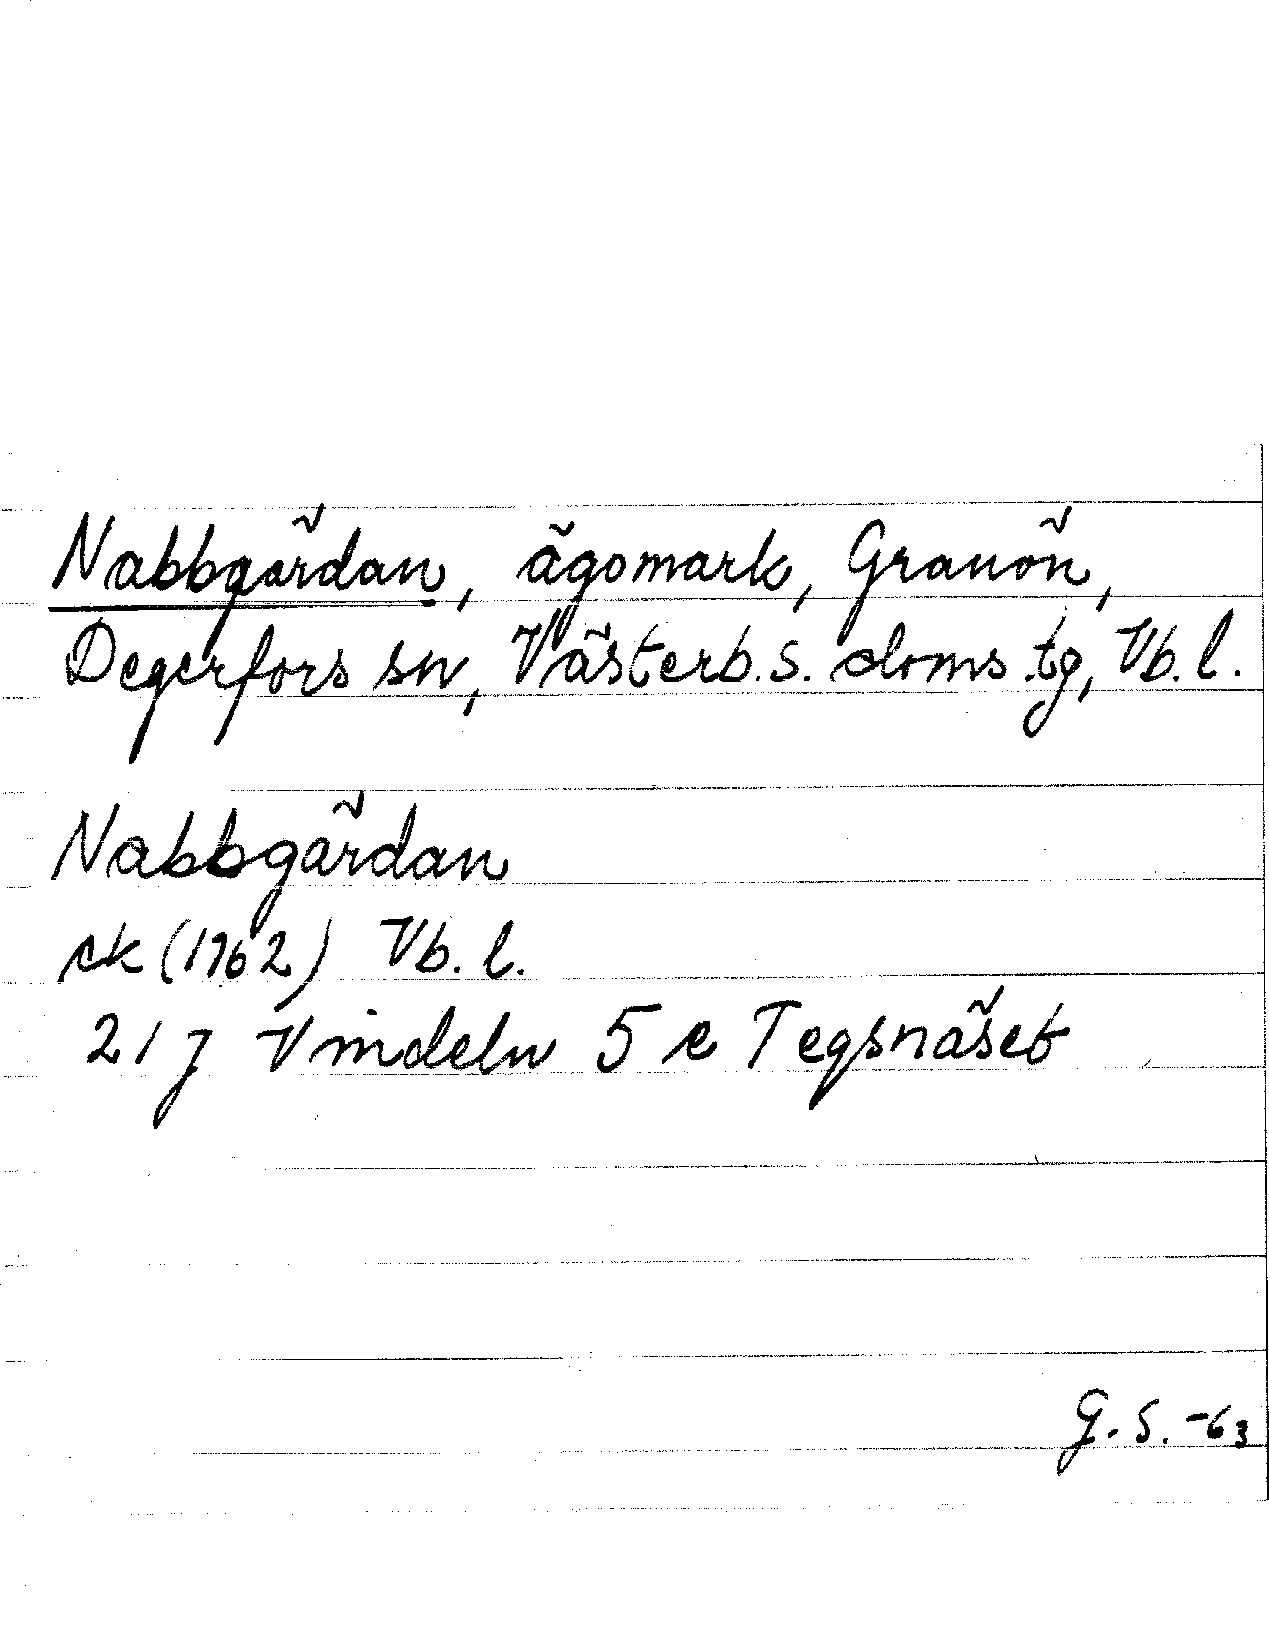 Nabbgårdan, ägomark, Granön,
Degerfors sn, Västerb. s. doms. tg, Vb. l.
Nabbgårdan
rk (1962) Vb. l.
21 J Vindeln 5 e Tegsnäset
G. S. -63